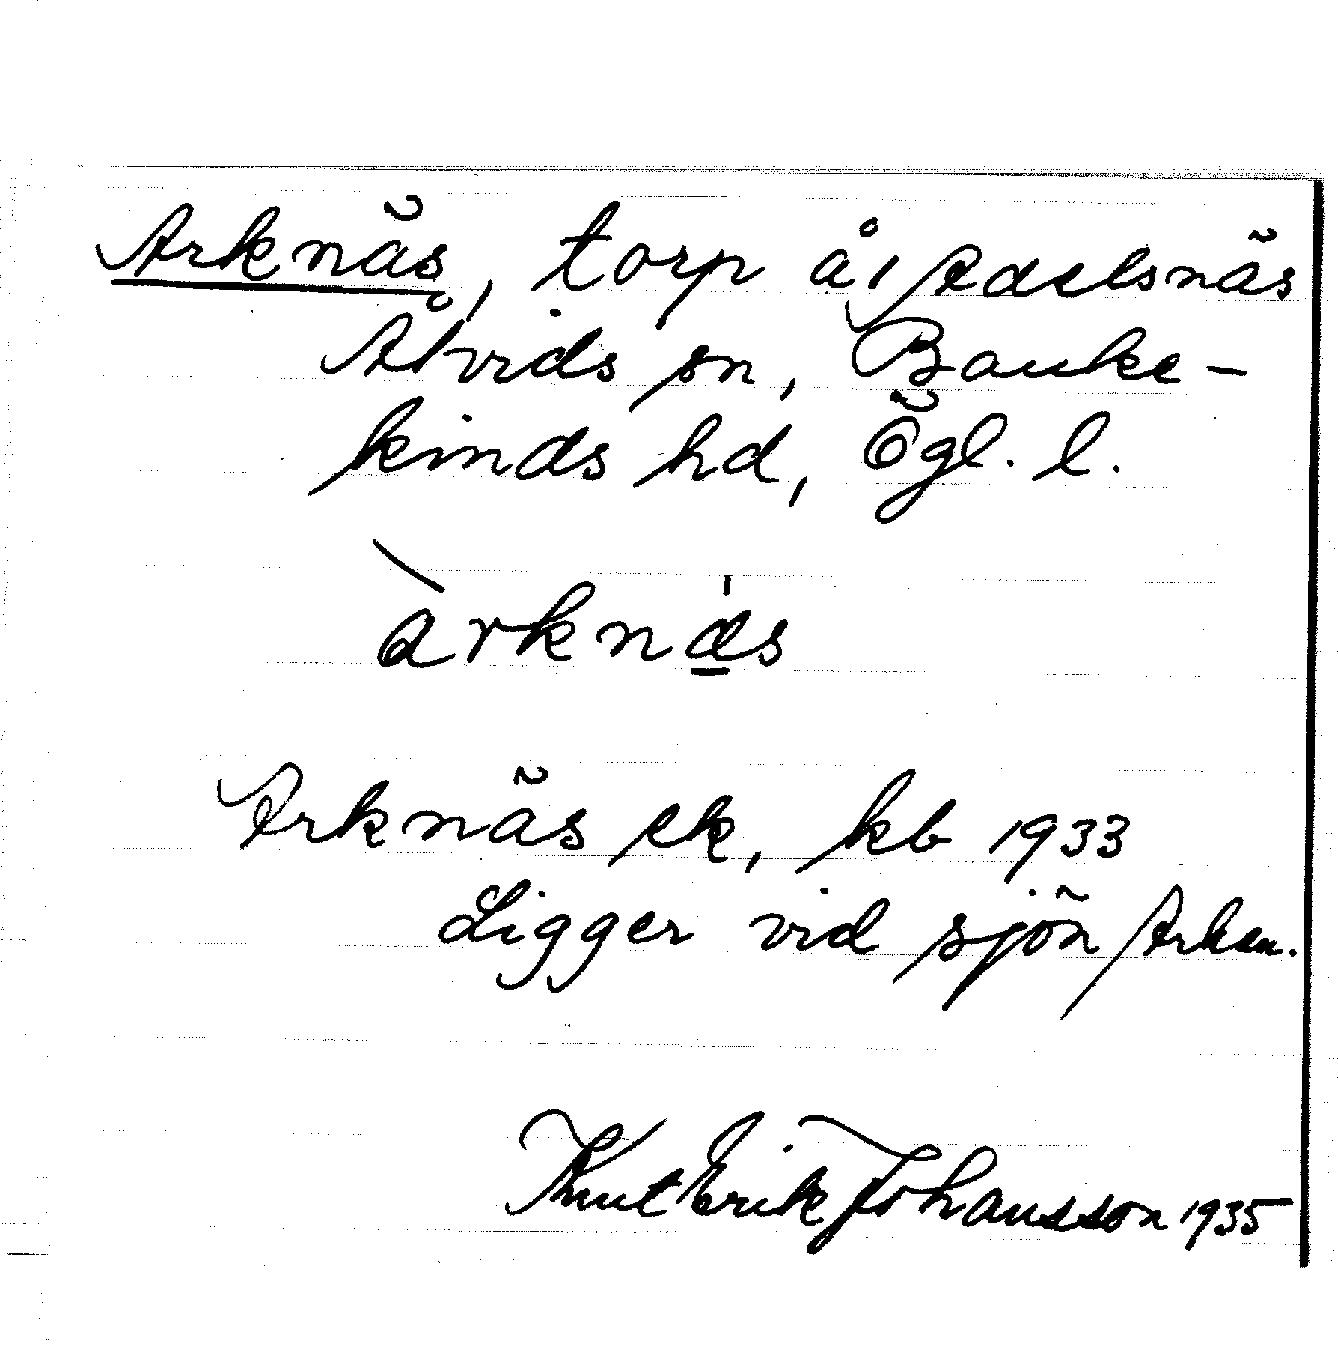 Arknäs, torp å Adelsnäs
Åtvids sn, Banke-
kinds hd, Ögl. l.
àrknæs
Arknäs ek, kb 1933
Ligger vid sjön Arken.
Knut Erik Johansson 1935